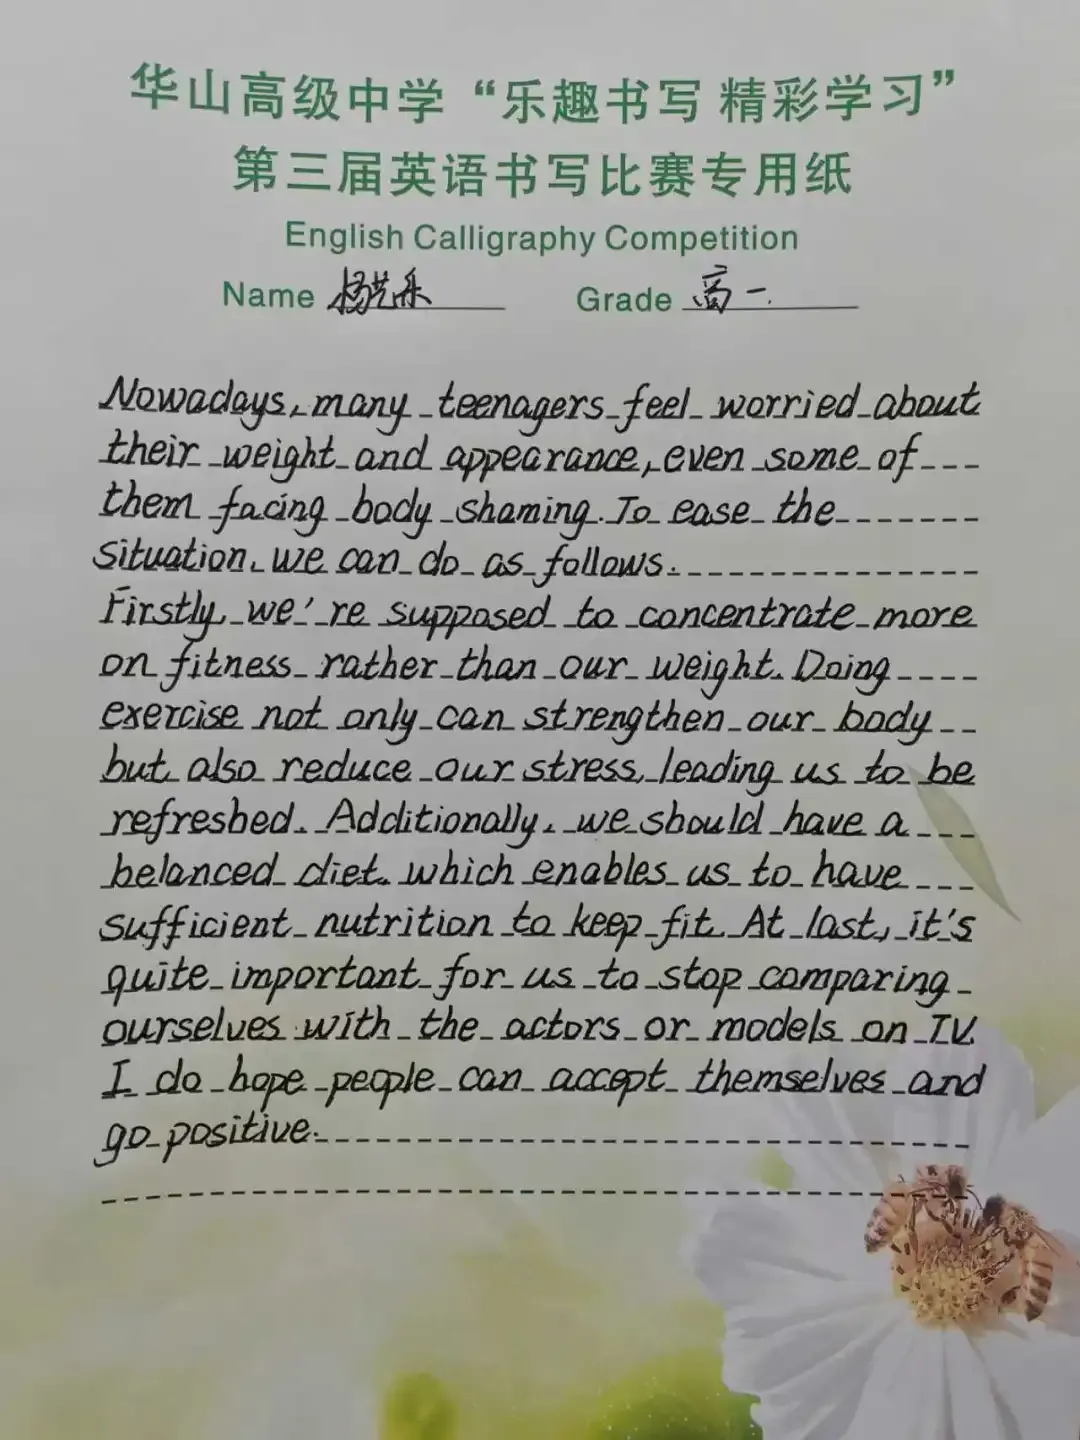 华山高级中学“乐趣书写 精彩学习”
第三届英语书写比赛专用纸
English Calligraphy Competition
Name 杨艺乐 Grade 高一.
Nowadays, many teenagers feel worried about
their weight and appearance, even some of
them facing body shaming. To ease the
situation, we can do as follows.
Firstly, we're supposed to concentrate more
on fitness rather than our weight. Doing
exercise not only can strengthen our body
but also reduce our stress, leading us to be
refreshed. Additionally, we should have a
belanced diet, which enables us to have
sufficient nutrition to keep fit. At last, it's
quite important for us to stop comparing
ourselves with the actors or models on TV.
I do hope people can accept themselves and
go positive.